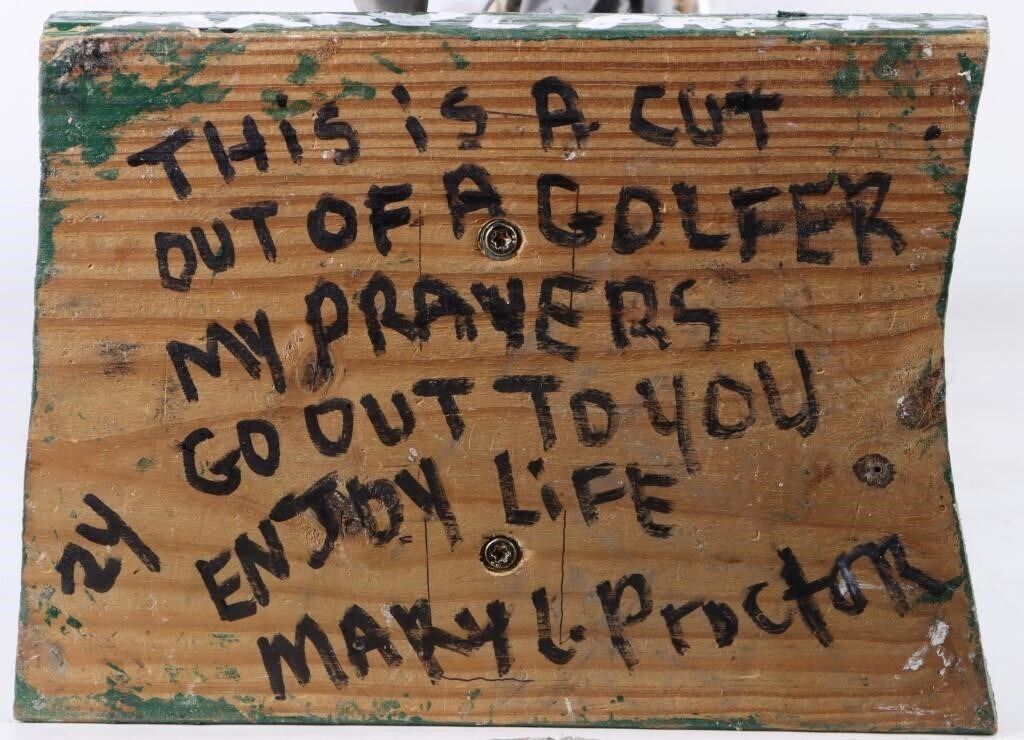 THiS iS A CUT
OUT OF A GOLFER
MY PRAYERS
GO OUT TO YOU
ENJOY LiFE
MARY L. Proctor